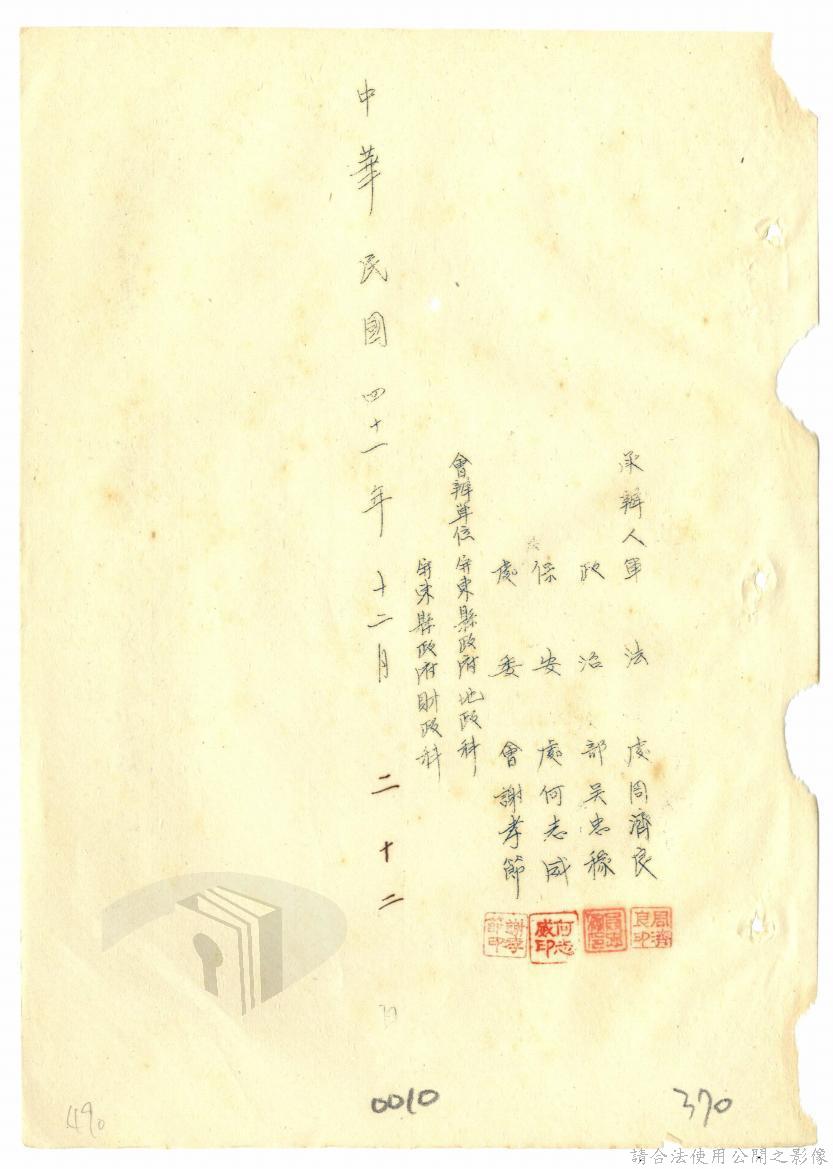 承辦人軍法處周濟良
政治部吳忠稼
保安處何志威
處委會謝孝節
會辦單位屏東縣政府地政科
屏東縣政府財政科
中華民國四十一年十二月二十二日
周濟良印
何志威印
謝孝節印
490
0010
370
請合法使用公開之影像